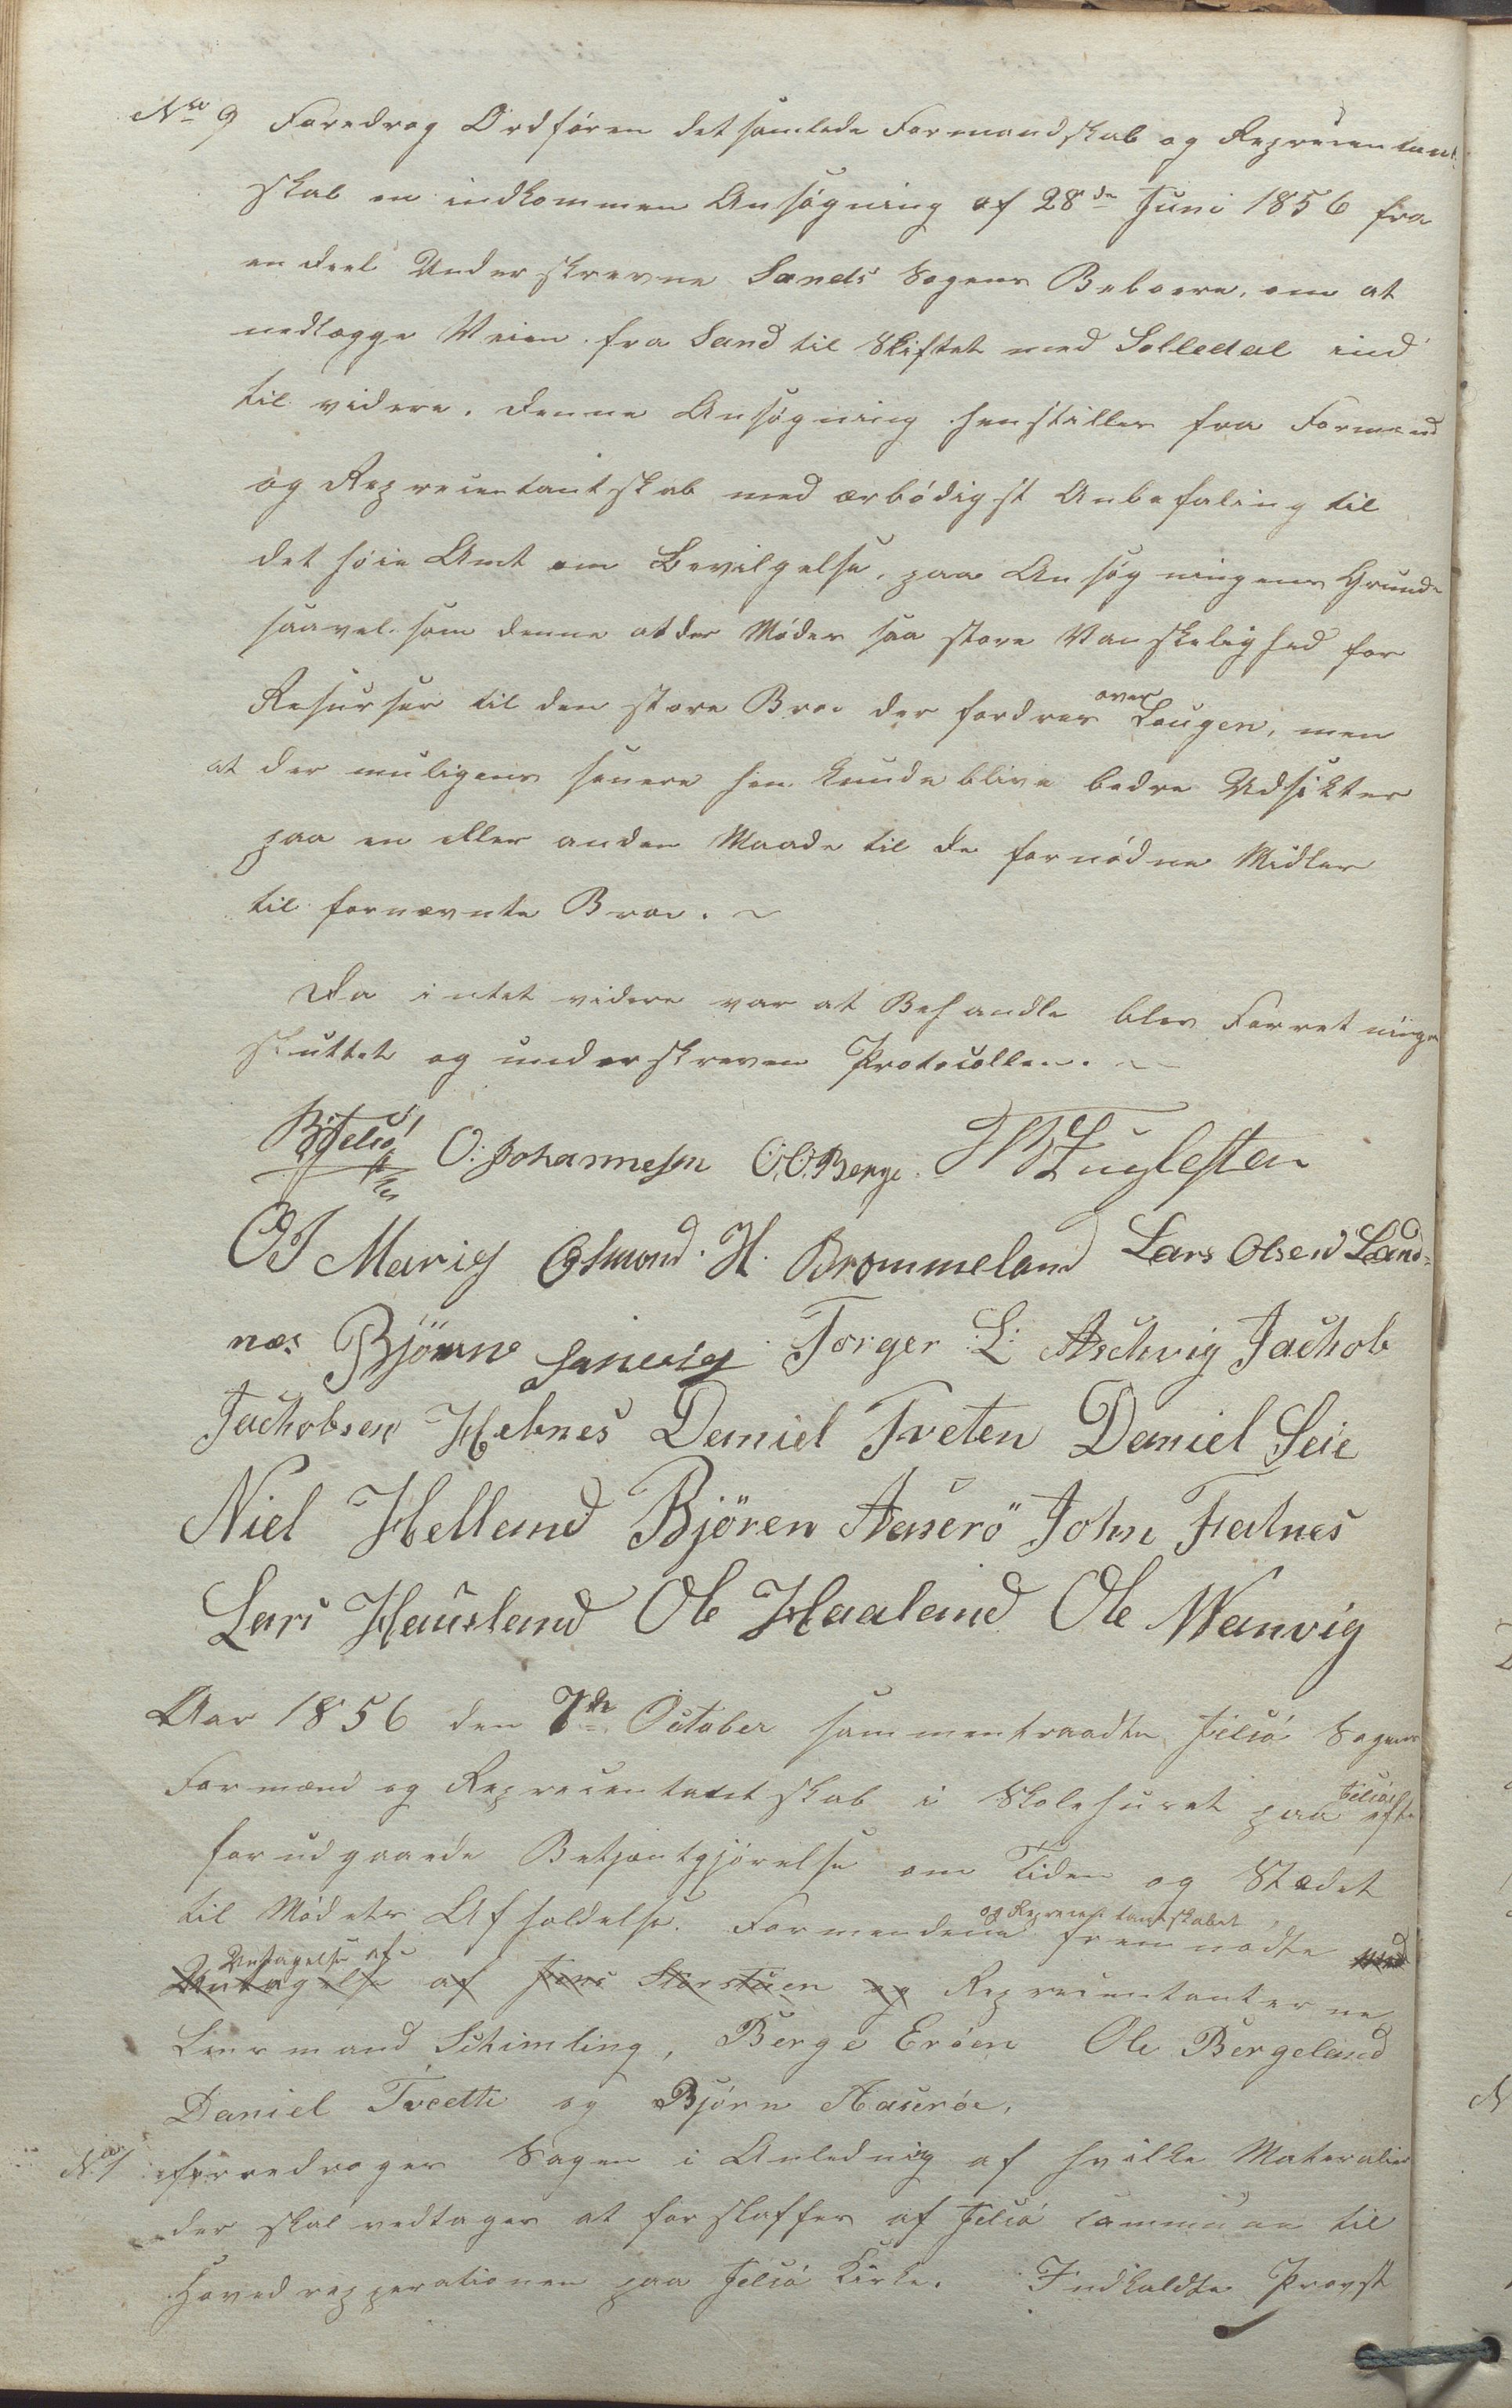 No 9 Foredrog Ordføren det samlede Formandskab og Repræsentant
skab en indkommen Ansøgning af 28de Juni 1856 fra
en deel Underskrevne Sands Sogens Beboere, om at
nedlægge Veien fra Sand til Skiftet med Solledal ind
til videre. Denne Ansøgning henstilles fra Formand
og Repræsentantskab med ærbødigst Anbefaling til
det høie Amt om Bevilgelse, paa Ansøgningens Grunde
saavelsom denne at der Møder saa store Vanskelighed for
Resurser til den store Broe der fordres over Lougen, men
at der muligens senere hen kunde blive bedre Udsikter
paa en eller anden Maade til de fornødne Midler
til fornævnte Broe.
Da intet videre var at Behandle blev Forretningen
sluttet og underskreven Protocollen.
B Jelsø O. Johannessen O. O. Berge.
O J Marvig Osmond. H. Brommeland Lars Olsen Sand-
næs Bjørne Torger L. Aschvig Jachob
Jachobsen Hebnes Daniel Tveten Daniel Leie
Niel Helland Björen Aaserö John Fatnes
Lars Hausland Ole Haaland Ole Wanvig
Aar 1856 den 7de October sammentraadte Jelsø Sogns
Formænd og Repræsentantskab i Skolehuset paa Jelsø efter
forudgaaede Bekjæntgjørelse om Tiden og Stædet
til Mødets Afholdelse. Formendene og Repræsentantskabet fremmødte med
Undtagelse af Undtagelse af Jens Storstuen og Repræsentanterne
Lensmand Schimling, Berge Erøen Ole Bergeland
Daniel Tveette og Bjørn Aaserøe.
No 1 foredroges Sagen i Anledning af hvilke Materialier
der skal vedtages at forskaffes af Jelsø Commune til
Hovedrepperationen paa Jelsø Kirke. Indkaldte Provst